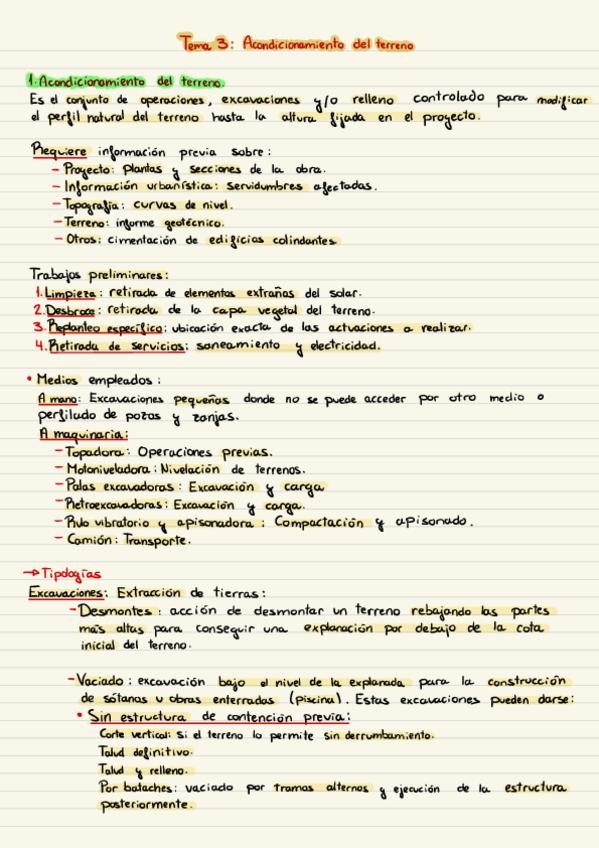 Tema 3: Acondicionamiento del terreno
1. Acondicionamiento del terreno.
Es el conjunto de operaciones, excavaciones y/o relleno controlado para modificar
el perfil natural del terreno hasta la altura fijada en el proyecto.
Requiere información previa sobre:
- Proyecto: plantas y secciones de la obra.
- Información urbanística: servidumbres afectadas.
- Topografía: curvas de nivel.
- Terreno: informe geotécnico.
- Otros: cimentación de edificios colindantes
Trabajos preliminares:
1. Limpieza: retirada de elementos extraños del solar.
2. Desbroze: retirada de la capa vegetal del terreno.
3. Replanteo específico: ubicación exacta de las actuaciones a realizar.
4. Retirada de servicios: saneamiento y electricidad.
• Medios empleados:
A mano: Excavaciones pequeñas donde no se puede acceder por otro medio o
perfilado de pozos y zanjas.
A maquinaria:
- Topadora: Operaciones previas.
- Motoniveladora: Nivelación de terrenos.
- Palas excavadoras: Excavación y carga
- Retroexcavadoras: Excavación y carga.
- Rulo vibratorio y apisonadora: Compactación y apisonado.
- Camión: Transporte.
→ Tipologías
Excavaciones: Extracción de tierras:
- Desmontes: acción de desmontar un terreno rebajando las partes
más altas para conseguir una explanación por debajo de la cota
inicial del terreno.
- Vaciado: excavación bajo el nivel de la explanada para la construcción
de sótanos u obras enterradas (piscina). Estas excavaciones pueden darse:
• Sin estructura de contención previa:
Corte vertical: si el terreno lo permite sin derrumbamiento.
Talud definitivo.
Talud y relleno.
Por bataches: vaciado por tramos alternos y ejecución de la estructura
posteriormente.